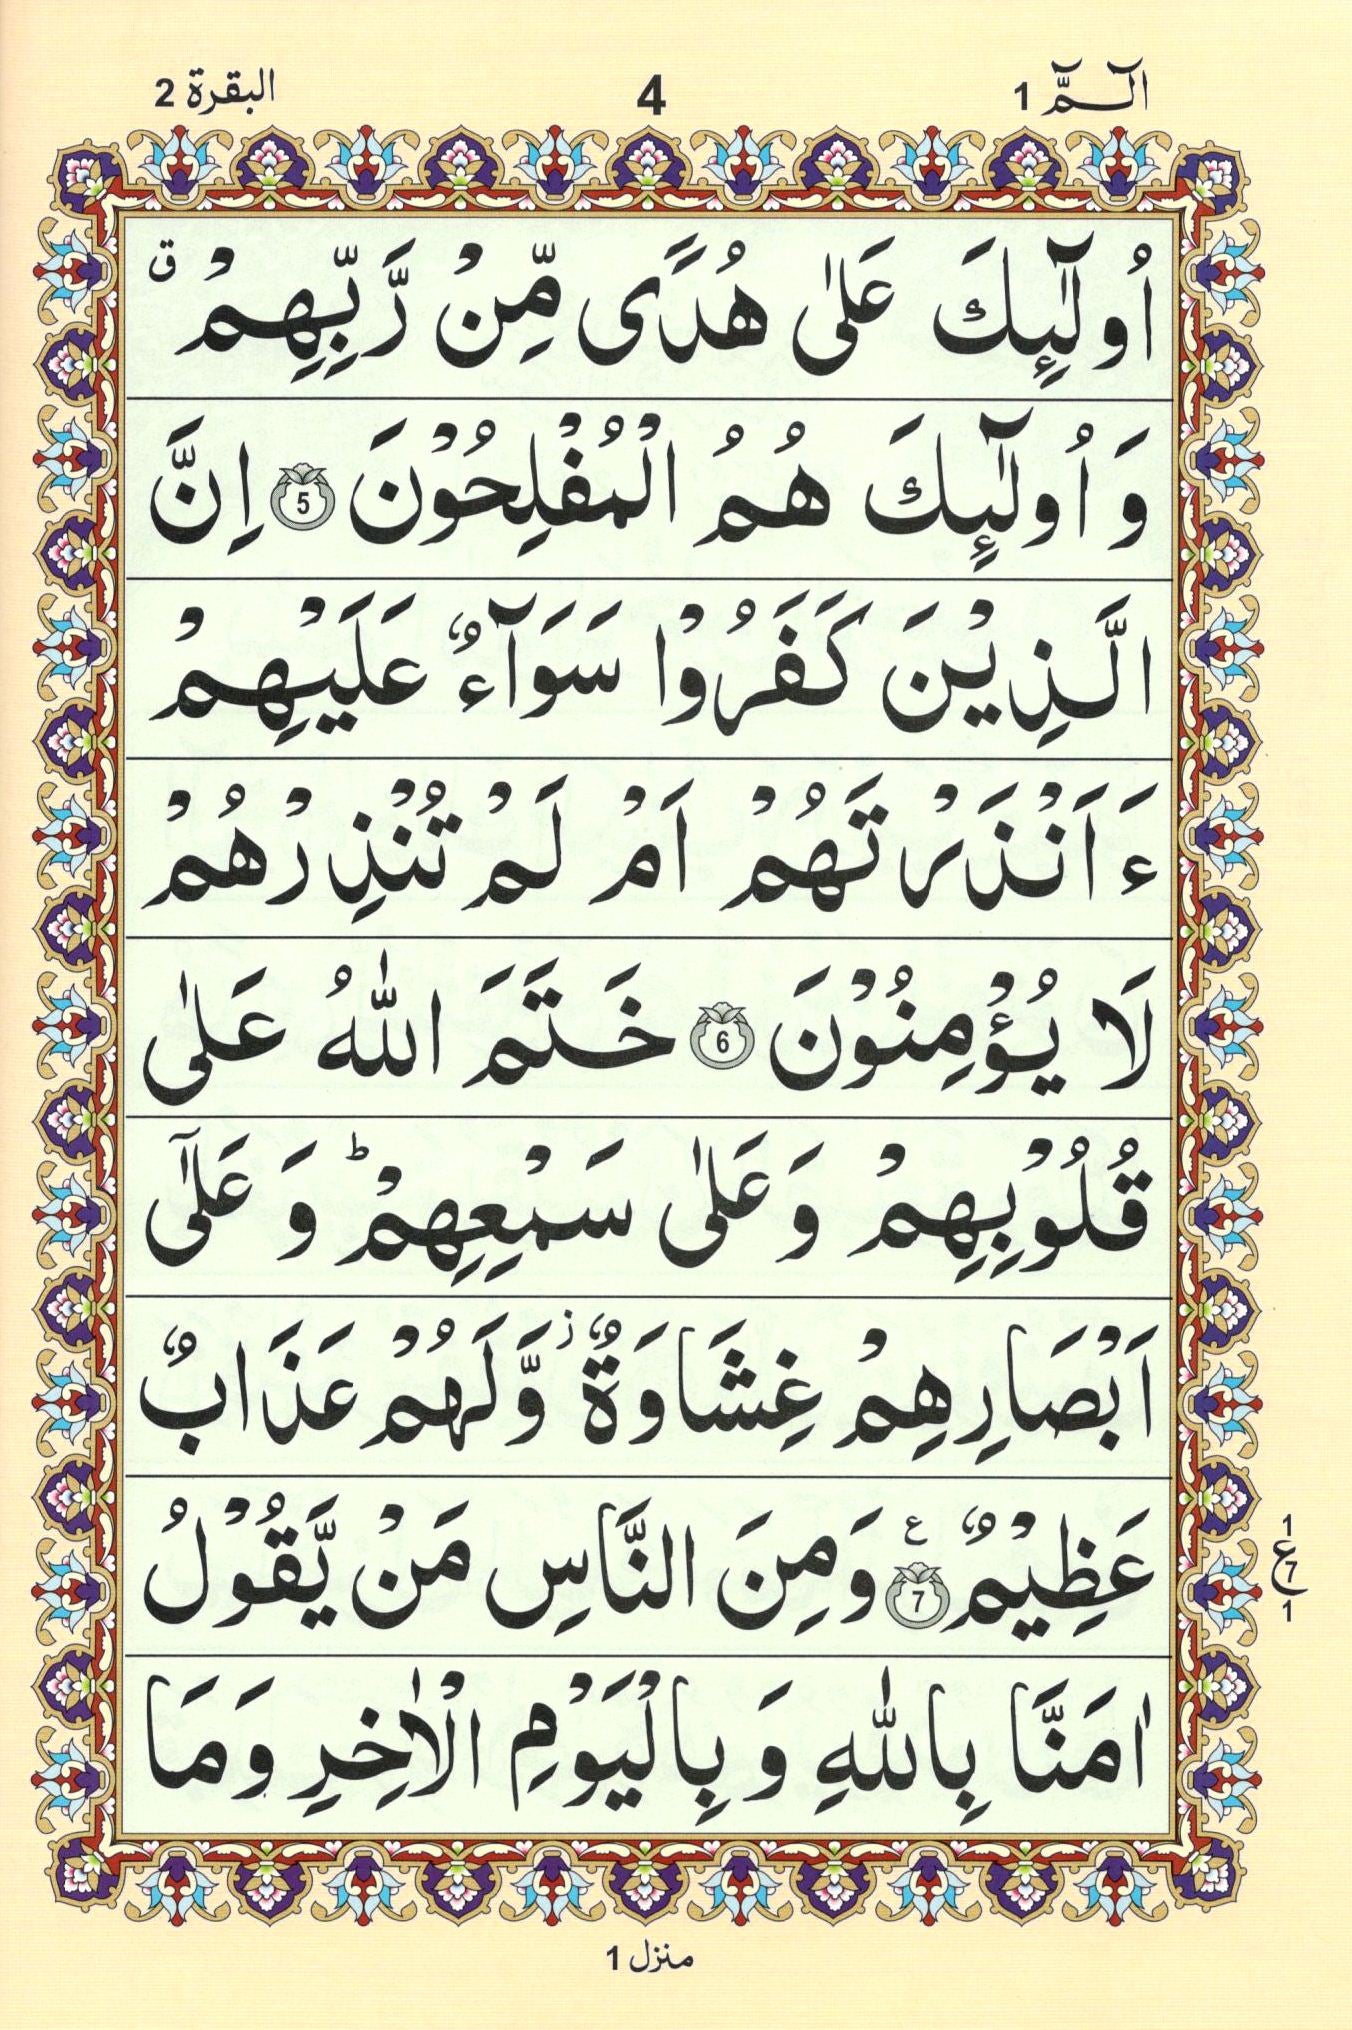 الٓمّٓ 1
4
البقرة 2
اُولٰٓئِكَ عَلٰى هُدًى مِّنْ رَّبِّهِمْ ق
وَ اُولٰٓئِكَ هُمُ الْمُفْلِحُوْنَ 5 اِنَّ
الَّذِيْنَ كَفَرُوْا سَوَآءٌ عَلَيْهِمْ
ءَاَنْذَرْتَهُمْ اَمْ لَمْ تُنْذِرْهُمْ
لَا يُؤْمِنُوْنَ 6 خَتَمَ اللّٰهُ عَلٰى
قُلُوْبِهِمْ وَعَلٰى سَمْعِهِمْ ؕ وَ عَلٰٓى
اَبْصَارِهِمْ غِشَاوَةٌ ز وَّلَهُمْ عَذَابٌ
عَظِيْمٌ 7 ع وَمِنَ النَّاسِ مَنْ يَّقُوْلُ
اٰمَنَّا بِاللّٰهِ وَ بِالْيَوْمِ الْاٰخِرِ وَمَا
1
ع 7
1
منزل 1